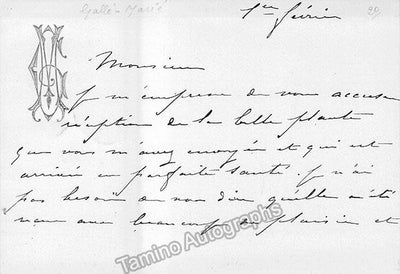 Galli-Marié
39
1er février
Monsieur
Je m'empresse de vous accuser
réception de la belle plante
que vous m'avez envoyée et qui est
arrivée en parfaite santé. Je n'ai
pas besoin de vous dire qu'elle a été
reçue avec beaucoup de plaisir et
Tamino Autographs